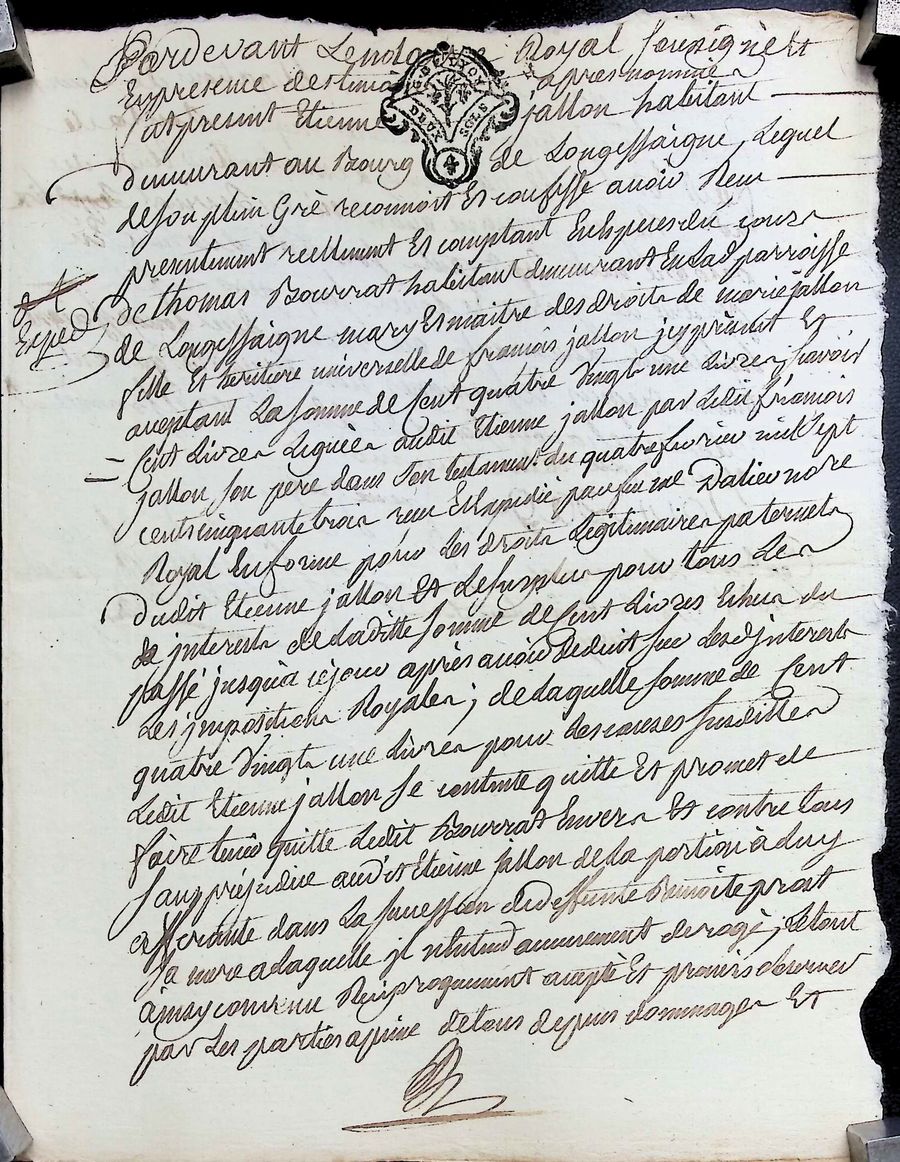 Pardevant Lenotaire Royal soussigné Et
En presence des temoins apres nommés
fut present Etienne jallon habitant
demeurant au Bourg de Longessaigne, Lequel
de son plein Gré reconnoit Et confesse avoir Reçu
presentement reellement Et comptant En Especes du cours
de thomas Bourrat habitant demeurant En lad parroisse
de Longessaigne mary Et maitre des droits de marie jallon
fille Et heritiere universelle de francois jallon jcy présent Et
aceptant La somme de Cent quatre Vingt une Livres, scavoir
Cent Livres Leguées audit Etienne jallon par Ledit francois
jallon son pere dans son testament du quatre fevrier mil sept
cents cinquante trois reçu Et Expedié par
Royal En forme pour Les droits Legitimaires paternels
dudit Etienne jallon Et Lesurplus pour tous Les
interests de Laditte somme de Cent Livres Echus du
passé jusqu'à cejour après avoir Deduit sur Lesd jnterests
Les jmpositions Royales; de Laquelle somme de Cent
quatre Vingts une Livres pour Les causes susdittes
Ledit Etienne jallon se contente quitte Et promet de
faire tenir quitte Ledit Bourrat Envers Et contre tous
sans préjudice audit Etienne jallon de la portion à luy
afferante dans La succession de deffunte Benoite prost
sa mere a laquelle jl n'entend aucunement deroger; Letout
ainsy convenu Reciproquement accepté Et promis observer
par Les parties a peine de tous depens dommages Et
Exped
G. DE LYON
DEUX SOLS
4